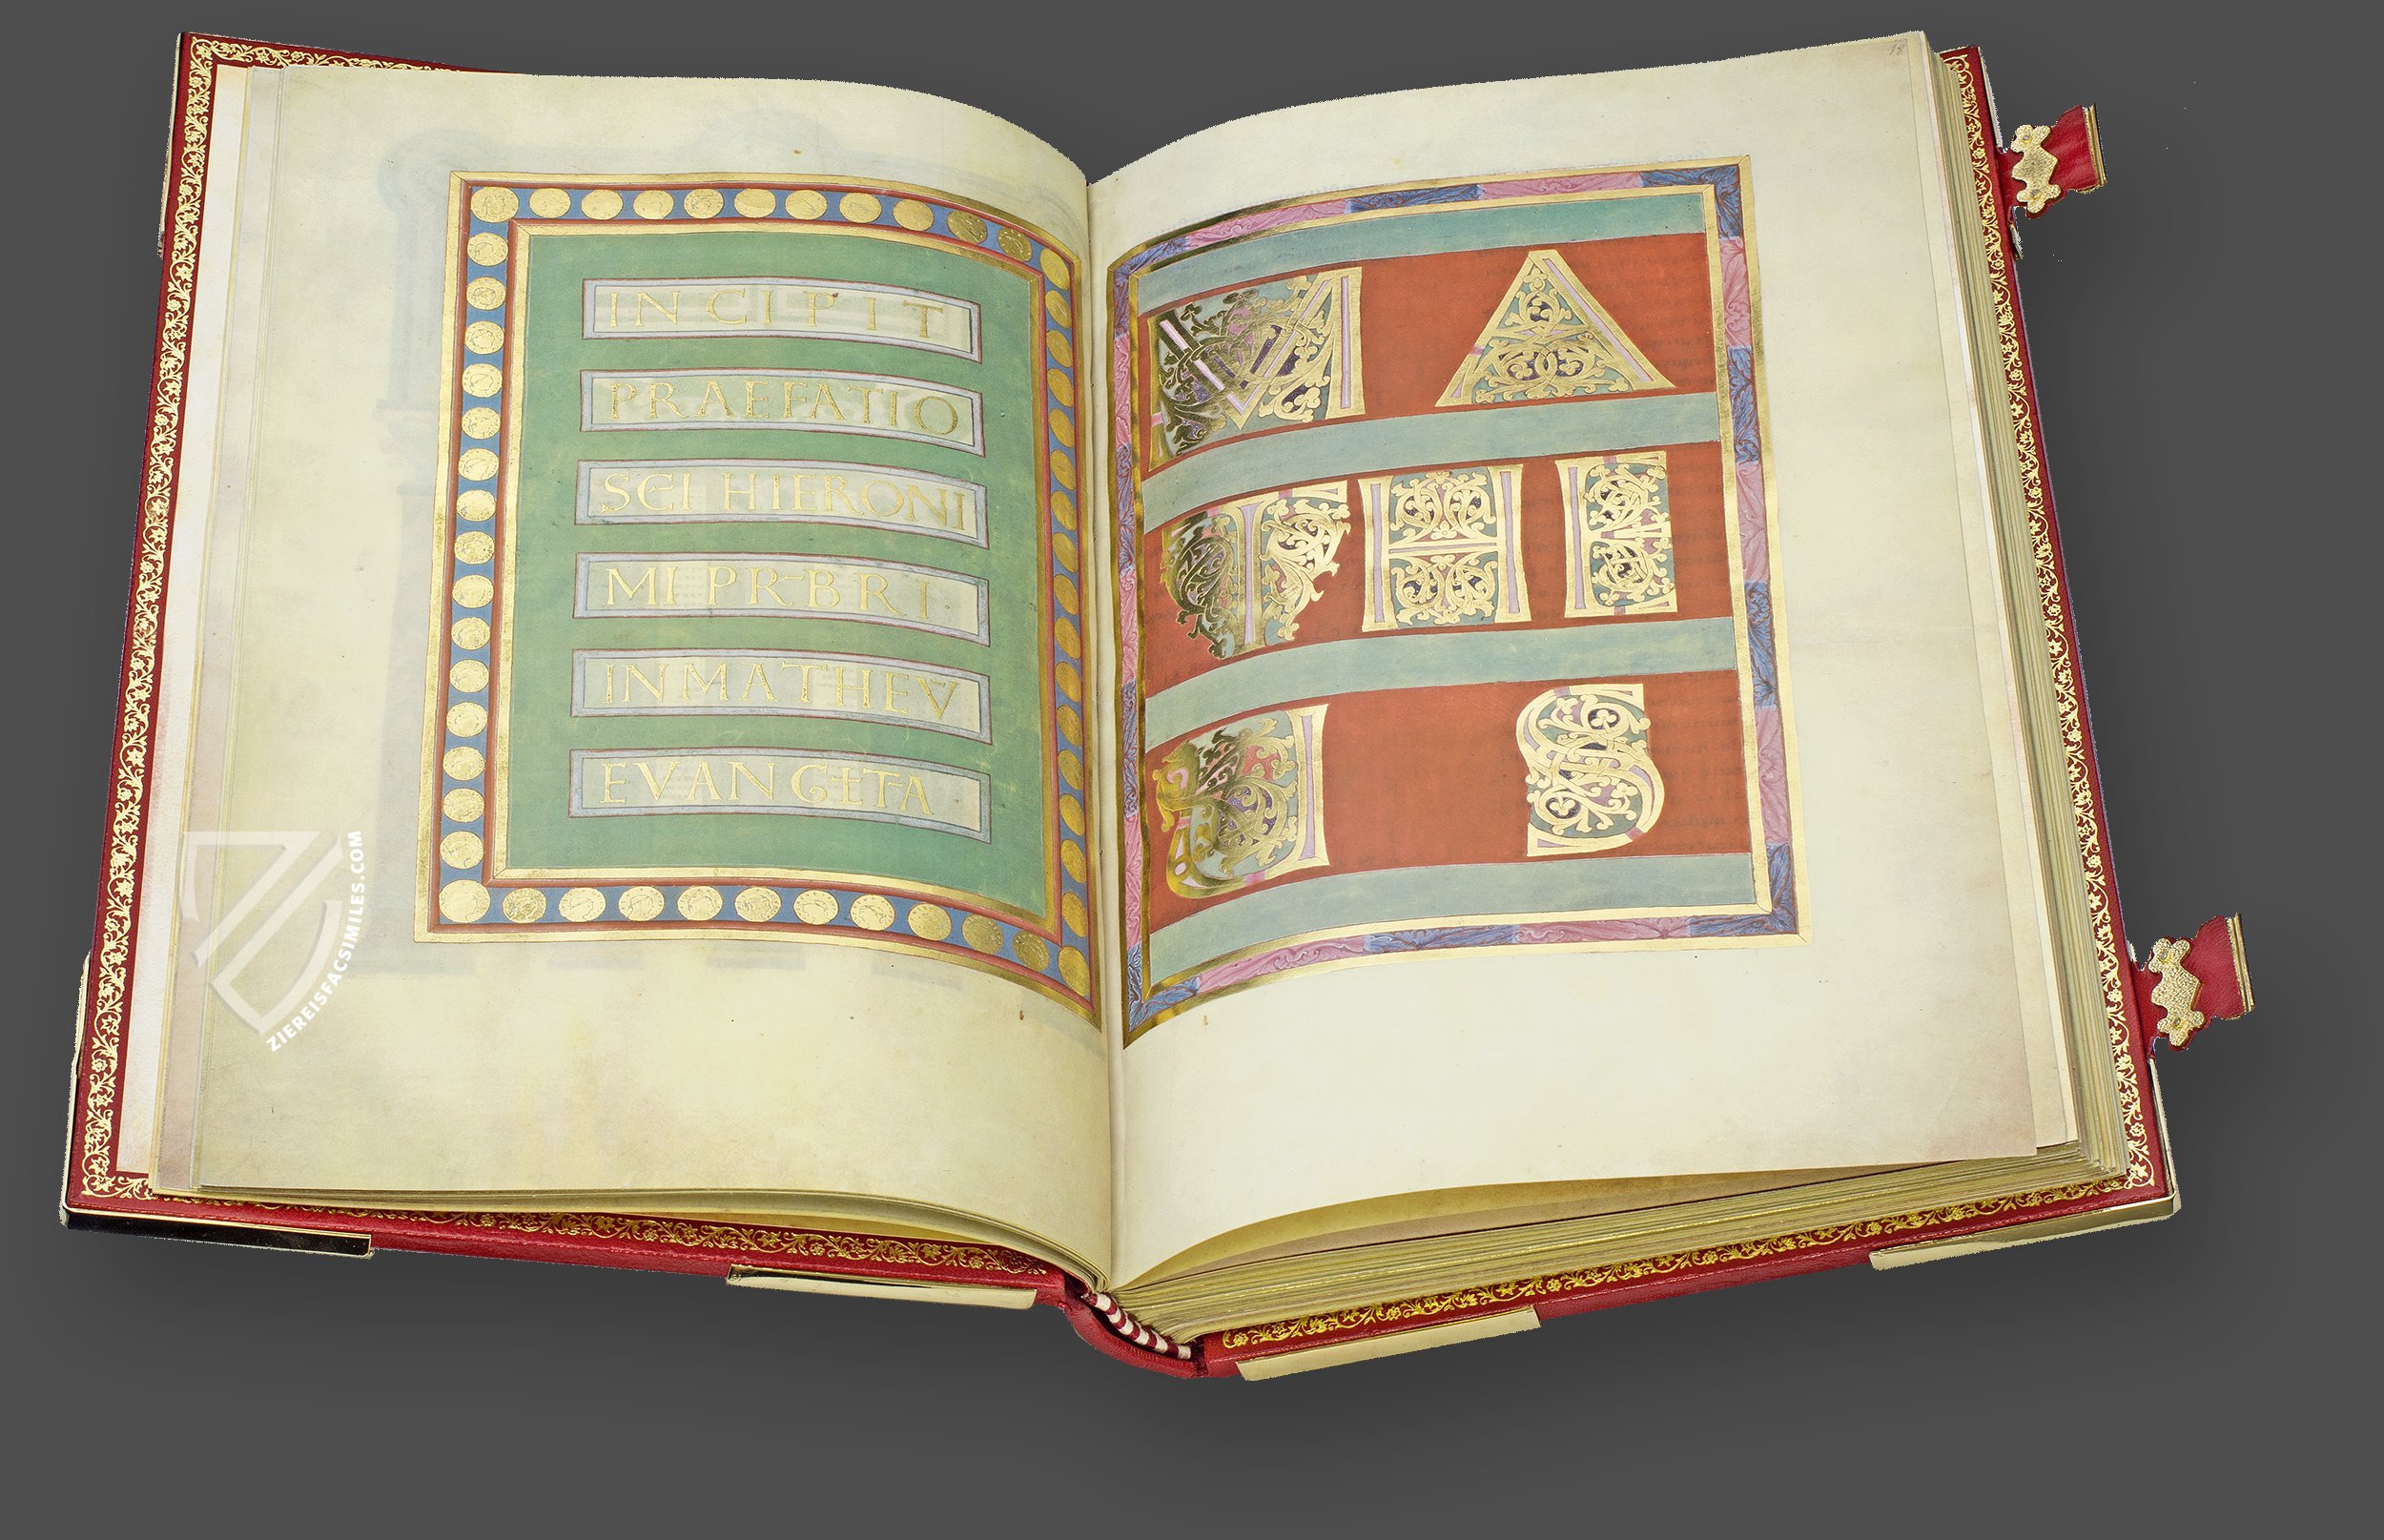 INCIPIT
PRAEFATIO
SCI HIERONI
MI PRBRI
IN MATHEV
EVANGLTA
M A
T H E
V S
18
ZIEREISFACSIMILES.COM